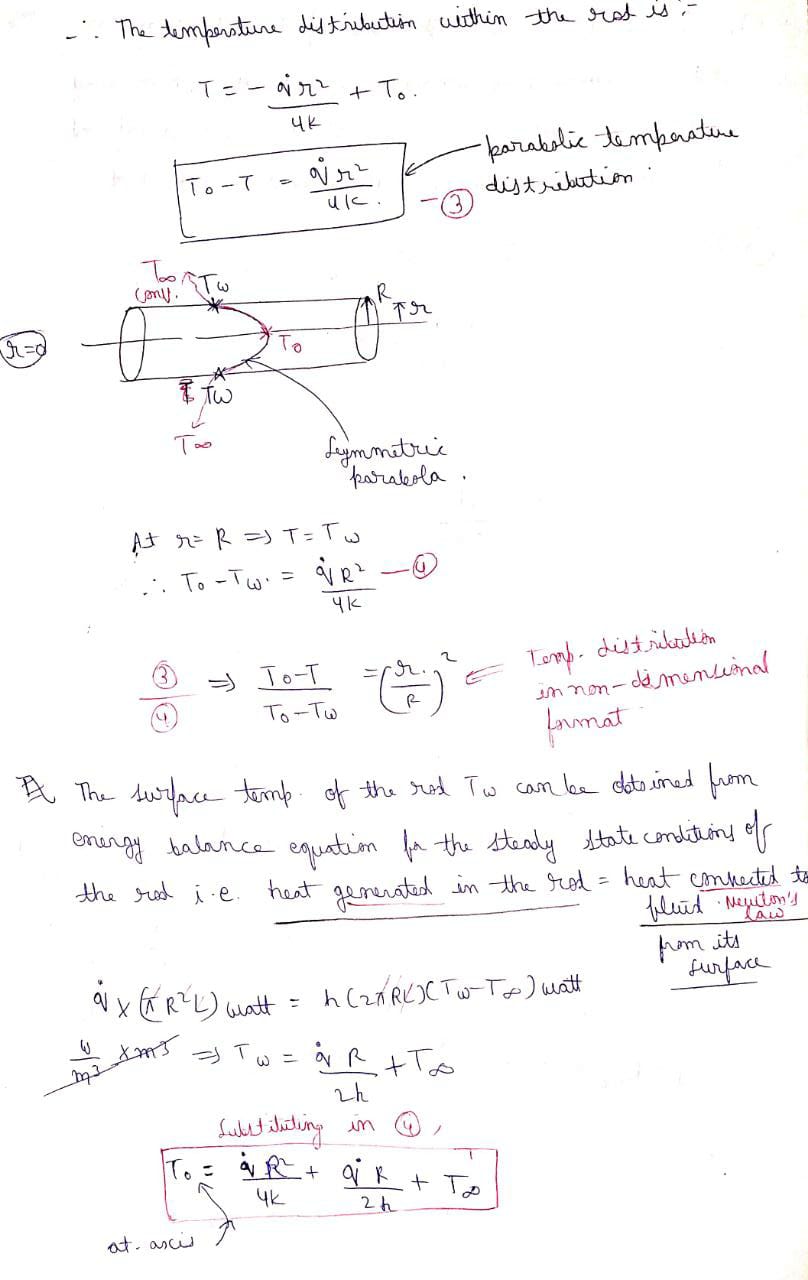 ∴ The temperature distribution within the rod is :-
T = - q̇r²/4K + To.
To - T = q̇r²/4K. - ③
parabolic temperature
distribution
T∞
conv.
Tw
R
↑r
r=0
To
Tw
T∞
Symmetric
parabola.
At r = R ⇒ T = Tw
∴ To - Tw = q̇R²/4K - ④
③/④ ⇒ (To-T)/(To-Tw) = (r/R)² ⇐ Temp. distribution
in non-dimensional
format
The surface temp. of the rod Tw can be obtained from
energy balance equation for the steady state conditions of
the rod i.e. heat generated in the rod = heat convected to
fluid. Newton's
law
from its
surface
q̇ × (πR²L) watt = h(2πRL)(Tw-T∞) watt
W/m³ × m³ ⇒ Tw = q̇R/2h + T∞
Substituting in ④,
To = q̇R²/4K + q̇R/2h + T∞
at axis